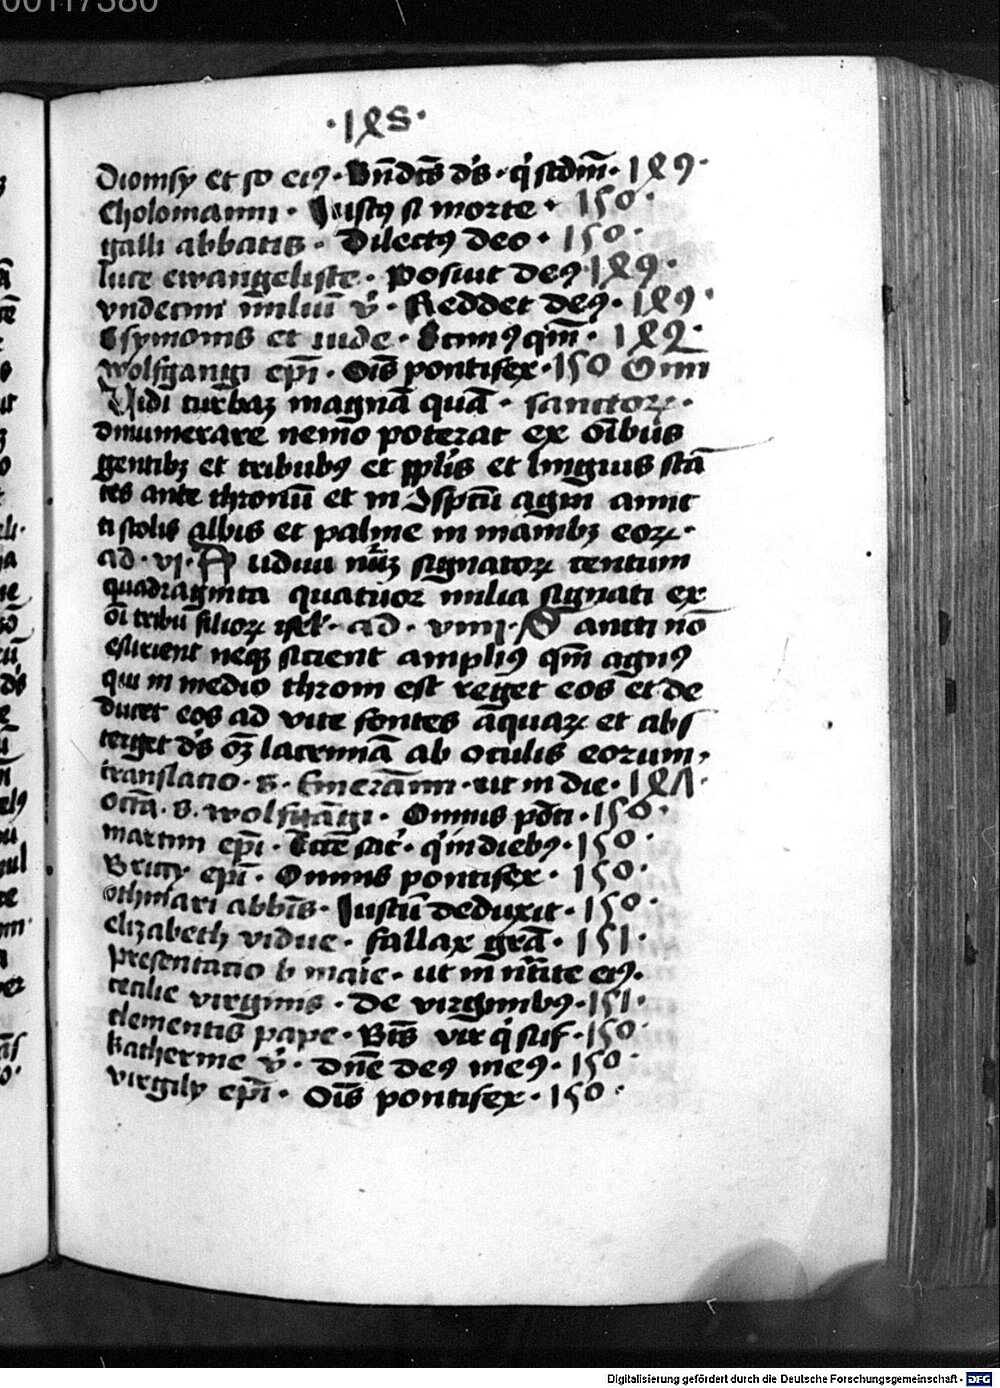 00117380
·148·
Dionisy et so eiꝯ · Bn̄dc̄s d's · q' scdm̄ · 149·
Cholomanni · Justꝯ si morte · 150·
galli abbatis · Dilectꝯ deo · 150·
luce ewangeliste · Posuit deꝯ 149·
vndecim miliū v̄ · Reddet deꝯ · 149·
Symonis et iude · 149·
wolfgangi epī · Oīs pontifex · 150 Om̄
Vidi turbaꝫ magnā quā · sanctoꝝ ·
dinumerare nemo poterat ex oībus
gentibꝫ et tribubꝯ et pplīs et linguis stā
tes ante thronū et in ꝯspctū agni amic
ti stolis albis et palme in manibꝫ eoꝝ ·
ad · vi · Audiui signatoꝝ centum
quadraginta quatuor milia signati ex
oī tribu filioꝝ isrl · ad · viiii · Sancti nō
esurient neqꝫ sicient ampliꝯ qm̄ agnꝯ
qui in medio throni est reget eos et de
ducet eos ad vite fontes aquaꝝ et abs
terget d's oēꝫ lacrimā ab oculis eorum ·
translatio · s · Emerāmi · ut in die · 147·
octā · s · wolfgāgi · Omnis põti · 150·
martini epī · Ecce sac̄ · q' in diebꝯ · 150·
Briccy epī · Omnis pontifex · 150·
othmari abbīs · Justū deduxit · 150·
elizabeth vidue · fallax grā · 151·
presentatio b marie · ut in eiꝯ.
cecilie virginis · De virginibꝯ · 151·
clementis pape · Bt̄s vir q' suf · 150·
katherine v̄ · Dn̄e deꝯ meꝯ · 150·
virgily epī · Oīs pontifex · 150·
Digitalisierung gefördert durch die Deutsche Forschungsgemeinschaft · DFG